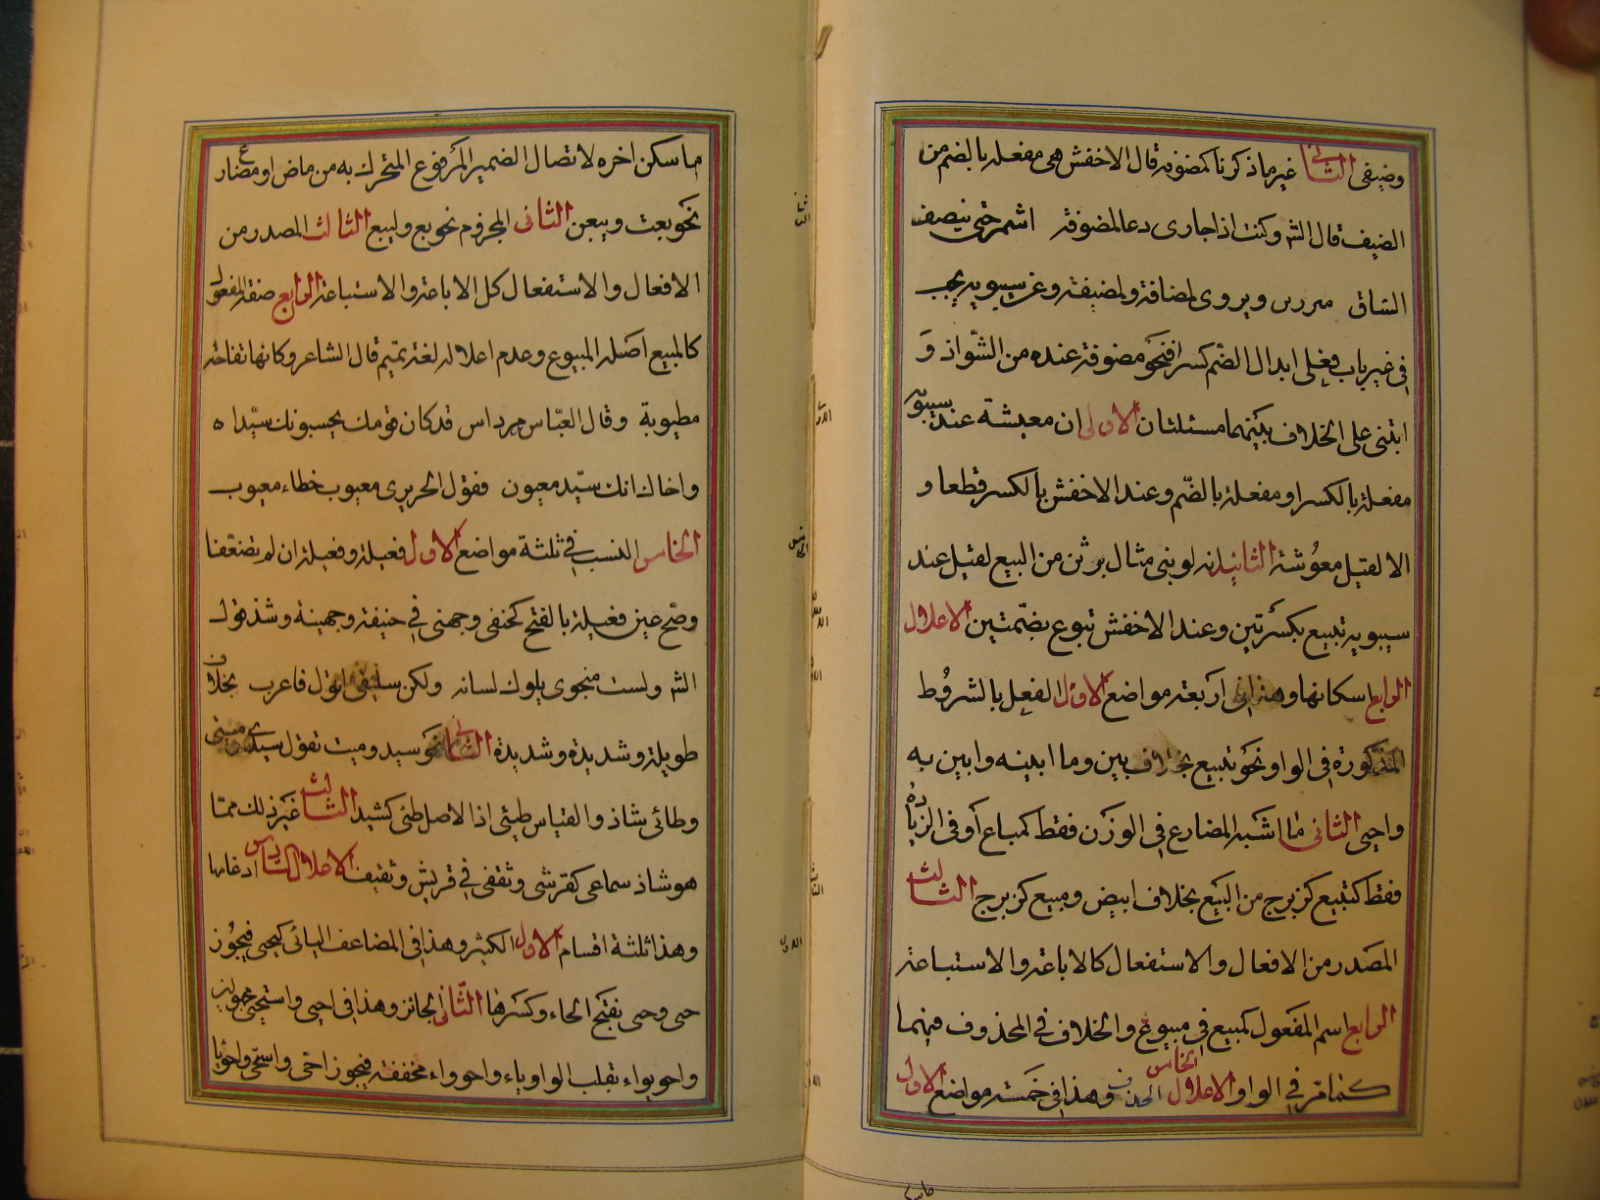 وضيفى الثانى غير ماذكرنا كمضوفه قال الاخفش هى مفعلة بالضم من
الضيف قال الش وكنت اذا جارى دعا لمضوفة اشمر حتى ينصف
الساق مئزرى ويروى لمضافة ولمضيفة وعن سيبويه يجب
فى غير باب فعلى ابدال الضم كسرا فنحو مضوفة عنده من الشواذ و
ابتنى على الخلاف بينهما مسئلتان الاولى ان معيشة عند سيبويه
مفعلة بالكسر او مفعلة بالضم وعند الاخفش بالكسر قطعا و
الا لقيل معوشة الثانية انه لو بنى مثال برثن من البيع لقيل عند
سيبويه تبيع بكسرتين وعند الاخفش تبوع بضمتين الاعلال
الرابع اسكانها وهذا فى اربعة مواضع الاول الفعل بالشروط
المذكورة فى الواو نحو تبيع بخلاف بين وما ابينه وابين به
واحيى الثانى ما اشبه المضارع فى الوزن فقط كمباع أو فى الزيادة
فقط كتبيع كزبرج من البيع بخلاف ابيض ومبيع كزبرج الثالث
المصدر من الافعال والاستفعال كالاباعة والاستباعة
الرابع اسم المفعول كمبيع فى مبيوع والخلاف فى المحذوف فيهما
كما مر فى الواو الاعلال الخامس الحذف وهذا فى خمسة مواضع الاول
ما سكن اخره لاتصال الضمير المرفوع المتحرك به من ماض او مضارع
نحو بعت ويبعن الثانى المجزوم نحو بع ولم يبع الثالث المصدر من
الافعال والاستفعال كالاباعة والاستباعة الرابع صفة المفعول
كالمبيع اصله المبيوع وعدم اعلاله لغة تميم قال الشاعر وكانها تفاحة
مطيوبة وقال العباس مرداس قد كان قومك يحسبونك سيدا ه
واخال انك سيد معيون فقول الحريرى معيوب خطاء معيوب
الخامس النسب فى ثلثة مواضع الاول فعيلة وفعيلة ان لم تضعفا
وصح عين فعيلة بالفتح كحنفى وجهنى فى حنيفة وجهينة وشذ قول
الش ولست بنحوى يلوك لسانه ولكن سليقى اقول فاعرب بخلاف
طويلة وشديدة وشديدة الثانى نحو سيد وميت تقول سيدى وميتى
وطائى شاذ والقياس طيئى اذ الاصل طئى كشيد الثالث غير ذلك مما
هو شاذ سماعى كقرشى وثقفى فى قريش وثقيف الاعلال السادس ادغامها
وهذا ثلثة اقسام الاول الكثير وهذا فى المضاعف اليائى كيحيى فيجوز
حى وحى بفتح الحاء وكسرها الثانى الجائز وهذا فى احيى واستحيى
واحويواء بقلب الواو ياء واحوواء مخففة فيجوز احى واستحى واحويا